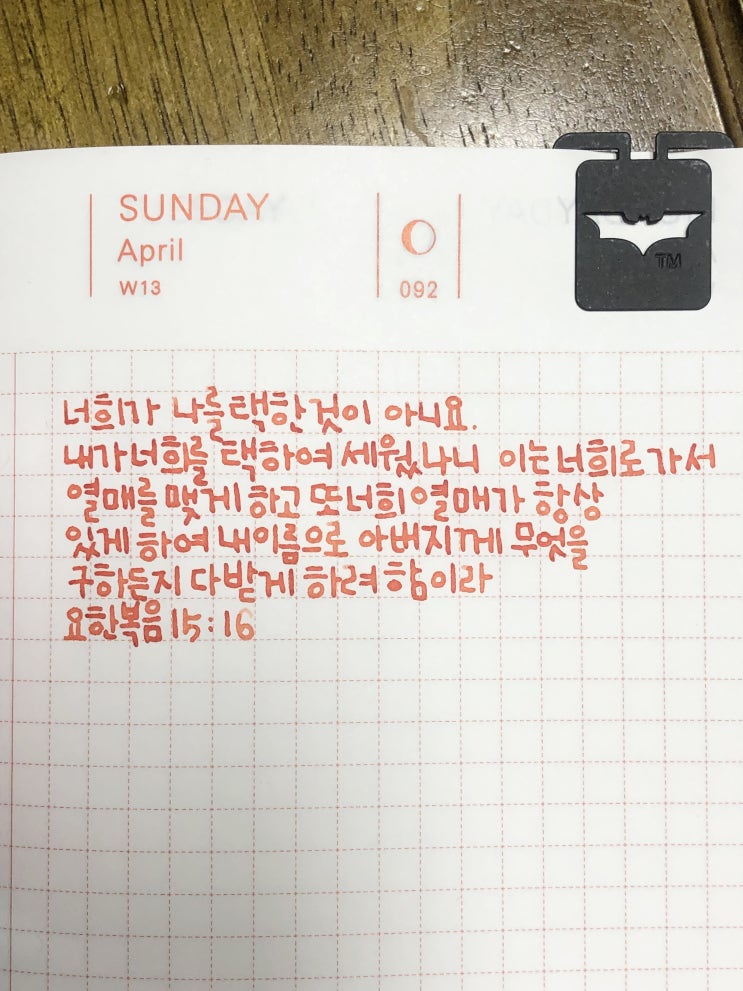 SUNDAY
April
W13
092
TM
너희가 나를 택한것이 아니요.
내가 너희를 택하여 세웠나니 이는 너희로 가서
열매를 맺게 하고 또 너희 열매가 항상
있게 하여 내 이름으로 아버지께 무엇을
구하든지 다 받게 하려 함이라
요한복음 15:16